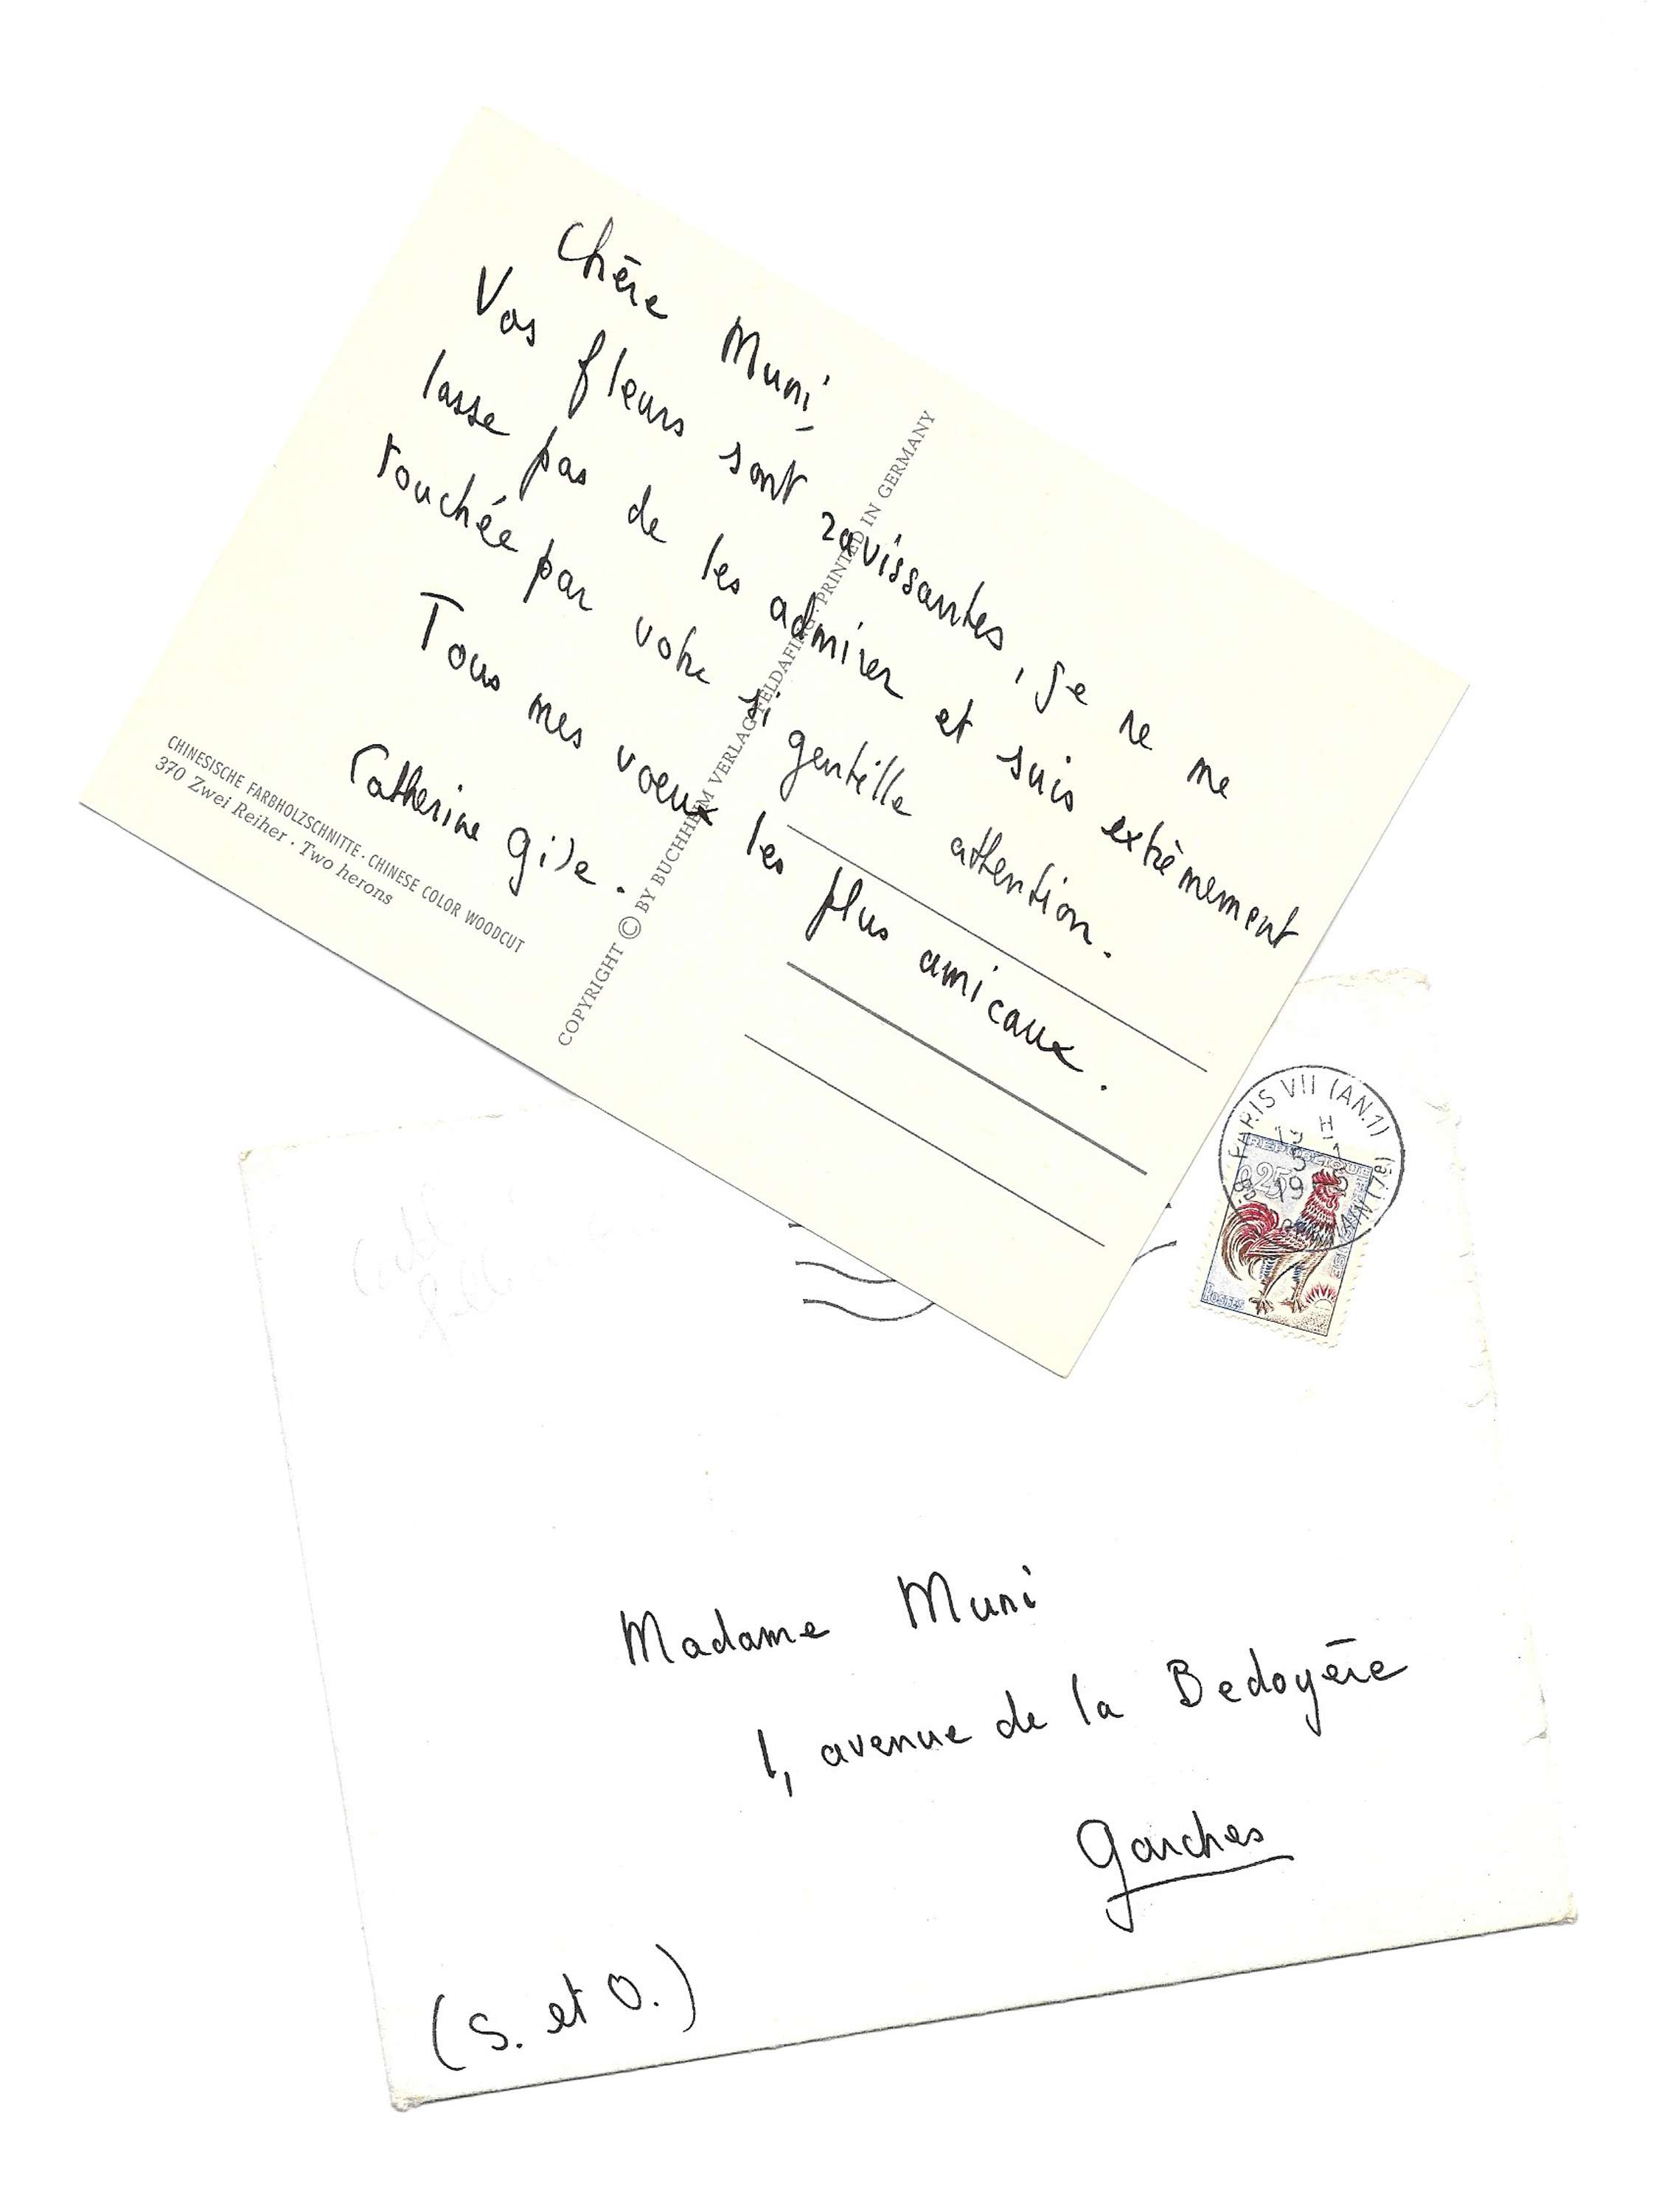 Chère Muni,
Vos fleurs sont ravissantes, je ne me
lasse pas de les admirer et suis extrèmement
touchée par votre si gentille attention.
Tous mes voeux les plus amicaux.
Catherine Gide.
CHINESISCHE FARBHOLZSCHNITTE · CHINESE COLOR WOODCUT
370 Zwei Reiher · Two herons
COPYRIGHT © BY BUCHHEIM VERLAG FELDAFING · PRINTED IN GERMANY
PARIS VII (AN.1)
19 H
5 - 1
REPUBLIQUE
0,25
POSTES
Madame Muni
1, avenue de la Bedoyère
Garches
(S. et O.)